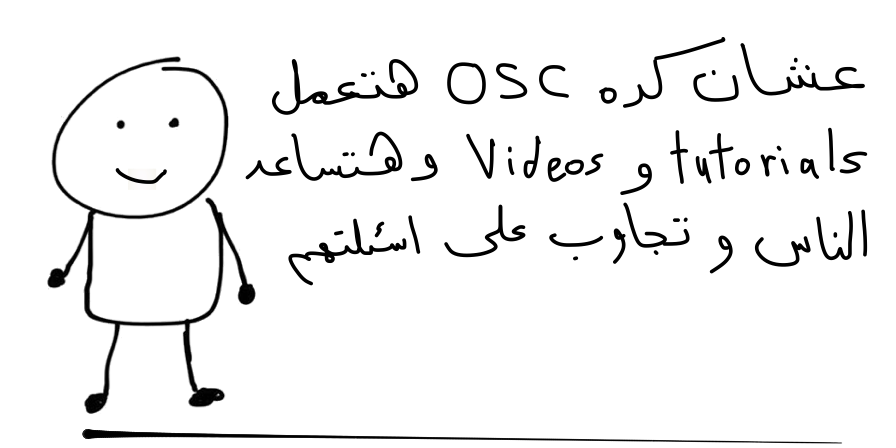 عشان كده OSC هتعمل
tutorials و Videos و هتساعد
الناس و تجاوب على اسئلتهم